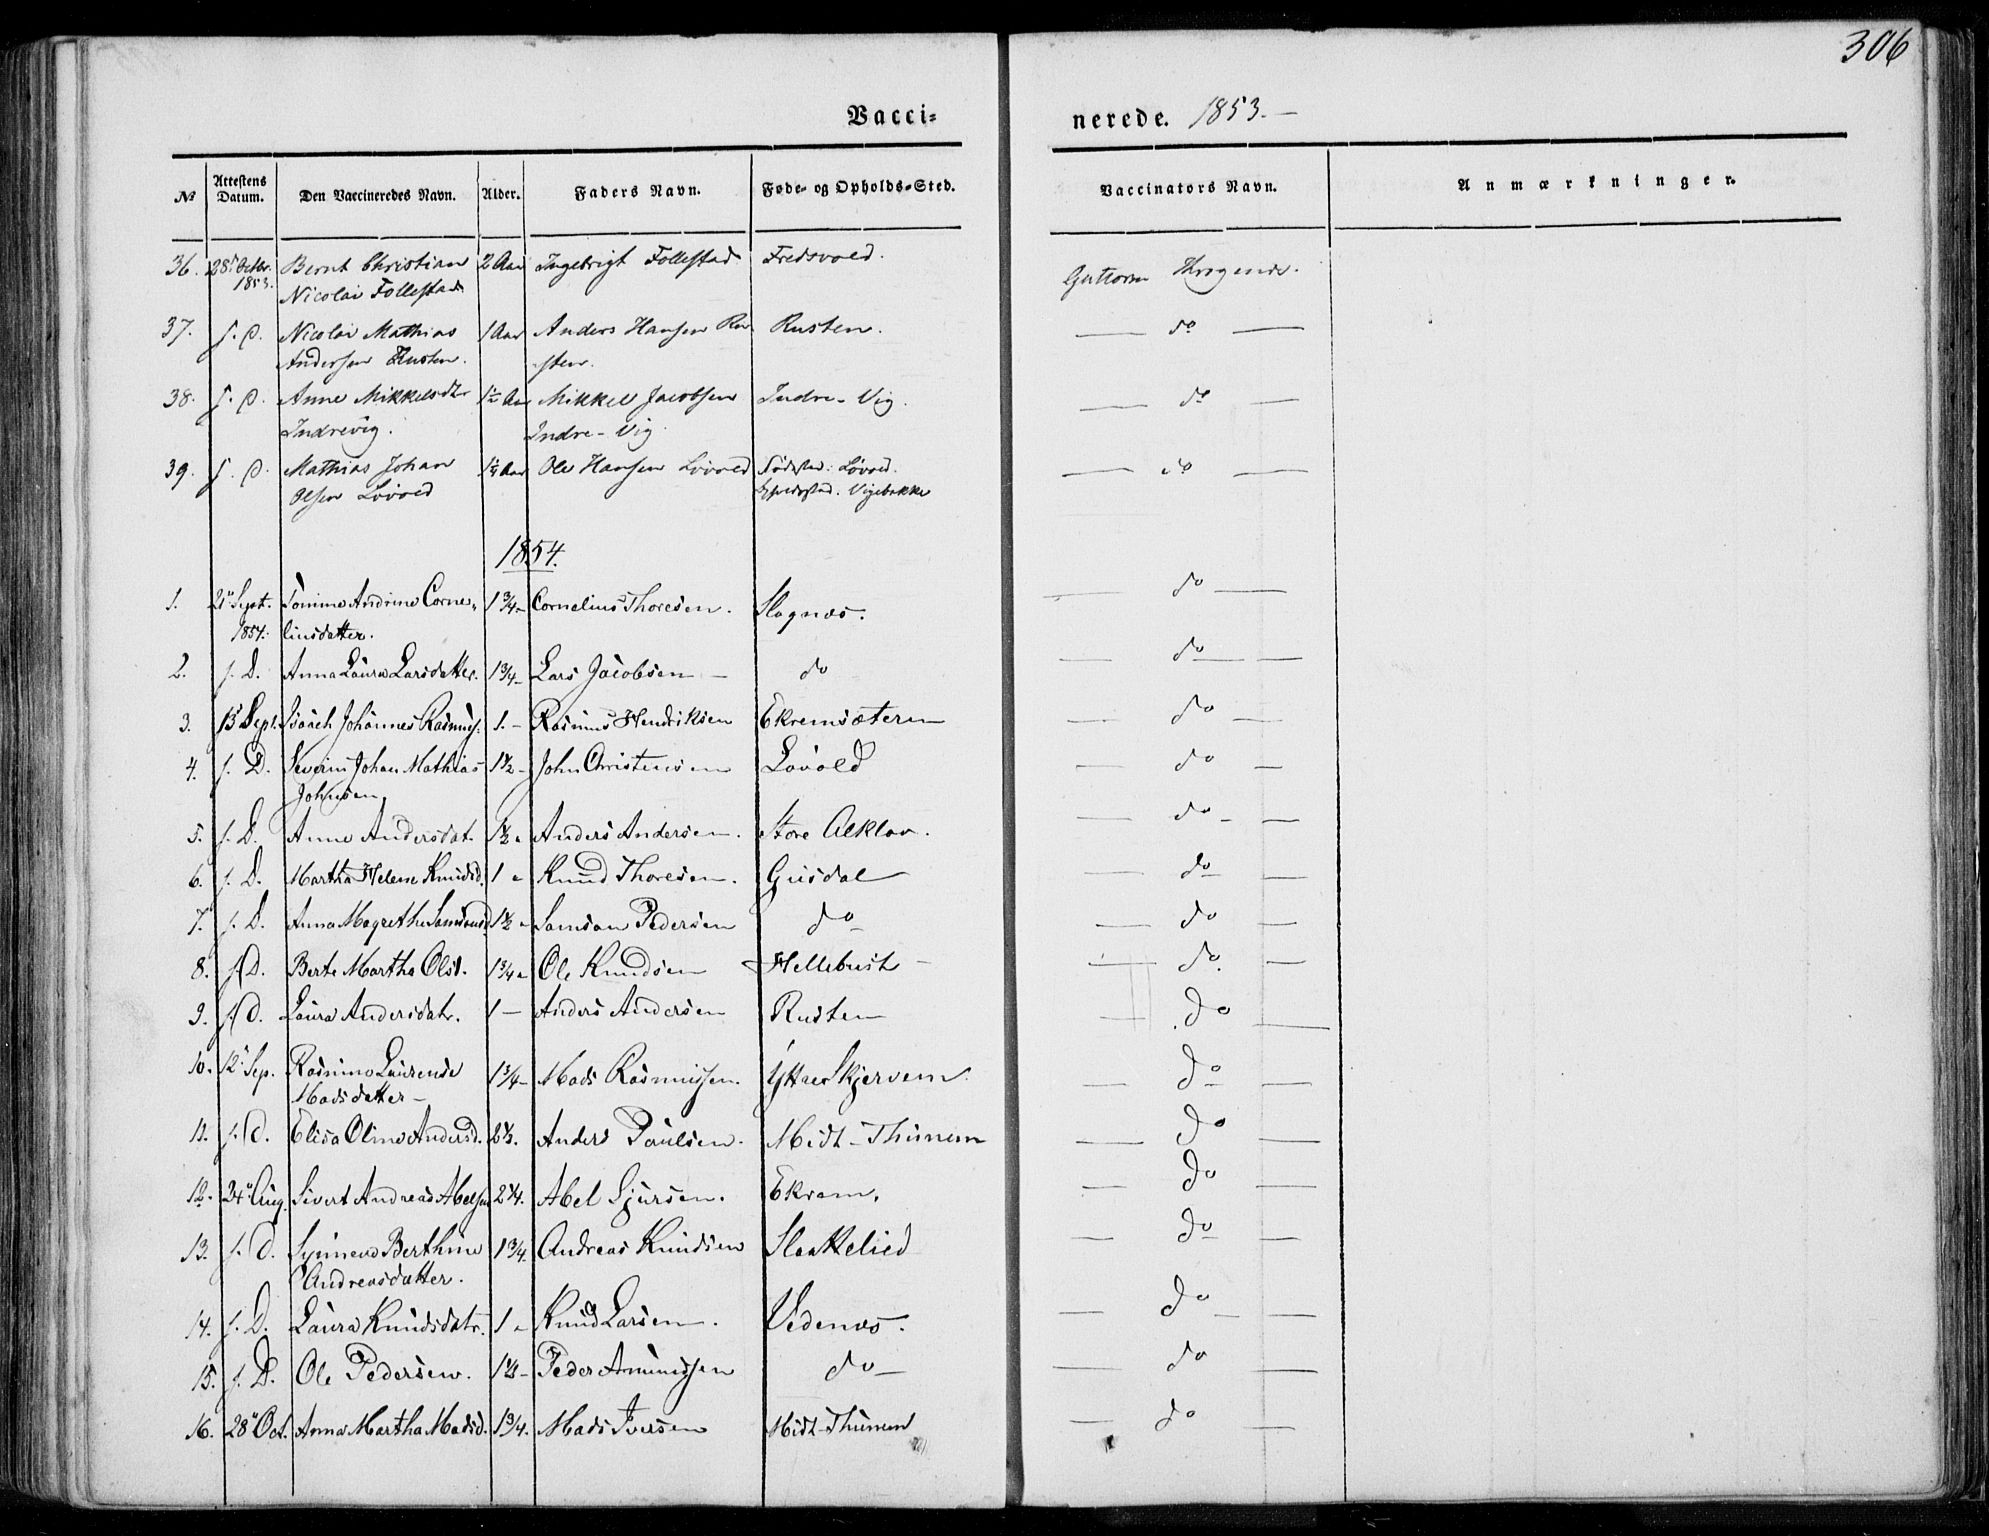 306
Vacci=
nerede. 1853.—
№ Attestens Datum. Den Vaccineredes Navn. Alder. Faders Navn. Føde- og Opholds-Sted. Vaccinators Navn. Anmærkninger.
36. 28de Octbr. Bernt Christian 2 Aar Ingebrigt Follestad Fredsvold. Guttorm
1853. Nicolai Follestad
37. s. D. Nicolai Mathias 1 Aar Anders Hansen Ru Rusten. — do —
Andersen Rusten. sten.
38. s. D. Anne Mikkelsdtr 1½ Aar Mikkel Jacobsen Indre-Vig. — do —
Indrevig. Indre-Vig
39. s. D. Mathias Johan 1¼ Aar Ole Hansen Lövold Födested: Lövold. — do —
Olsen Lövold Vigebakke
1854.
1. 21de Sept. Andrine Corne„ 1¾ - Cornelius Thoresen. Slagnæs. — do —
1854. liusdatter.
2. s. D. Anna Laura Larsdatter. 1¾ - Lars Jacobsen — do — do —
3. 13 Sept. Johannes Rasmus. 1. - Rasmus Hendriksen Ekremsæteren — do —
4. s. D. Severin Johan Mathias 1½ - John Christensen Lövold — do —
Johnsen
5. s. D. Anne Andersdat. 1½ - Anders Andersen. Store Alklov. — do —
6. s. D. Martha Helene Knudsd. 1 - Knud Thoresen. Gusdal — do —
7. s. D. Anna Magrethe Samsonsd. 1½ - Samson Pedersen do — do —
8. s. D. Berte Martha Olsd. 1¾ - Ole Knudsen Hellebust — — do —
9. s. D. Laura Andersdatr. 1 — Anders Andersen Rusten — do —
10. 12 Sep. Rasmine Laurense 1¾ - Mads Rasmussen. Ytre Skjerven. — do —
Madsdatter —
11. s. D. Elisa Oline Andersd. 2½. Anders Paulsen. Midt-Thunem — do —
12. 24 Aug. Sivert Andreas Abelsen 2¼. Abel Sjursen. Ekrem. — do —
13. s. D. Synneve Berthine 1¾. Andreas Knudsen Slattelied — do —
Andreasdatter.
14. s. D. Laura Knudsdatr. 1 - Knud Larsen. Vedenæs. — do —
15. s. D. Ole Pedersen. 1½ - Peder Amundsen do — — do —
16. 28 Oct. Anna Martha Madsd. 1¾. Mads Iversen Midt-Thunem — do —